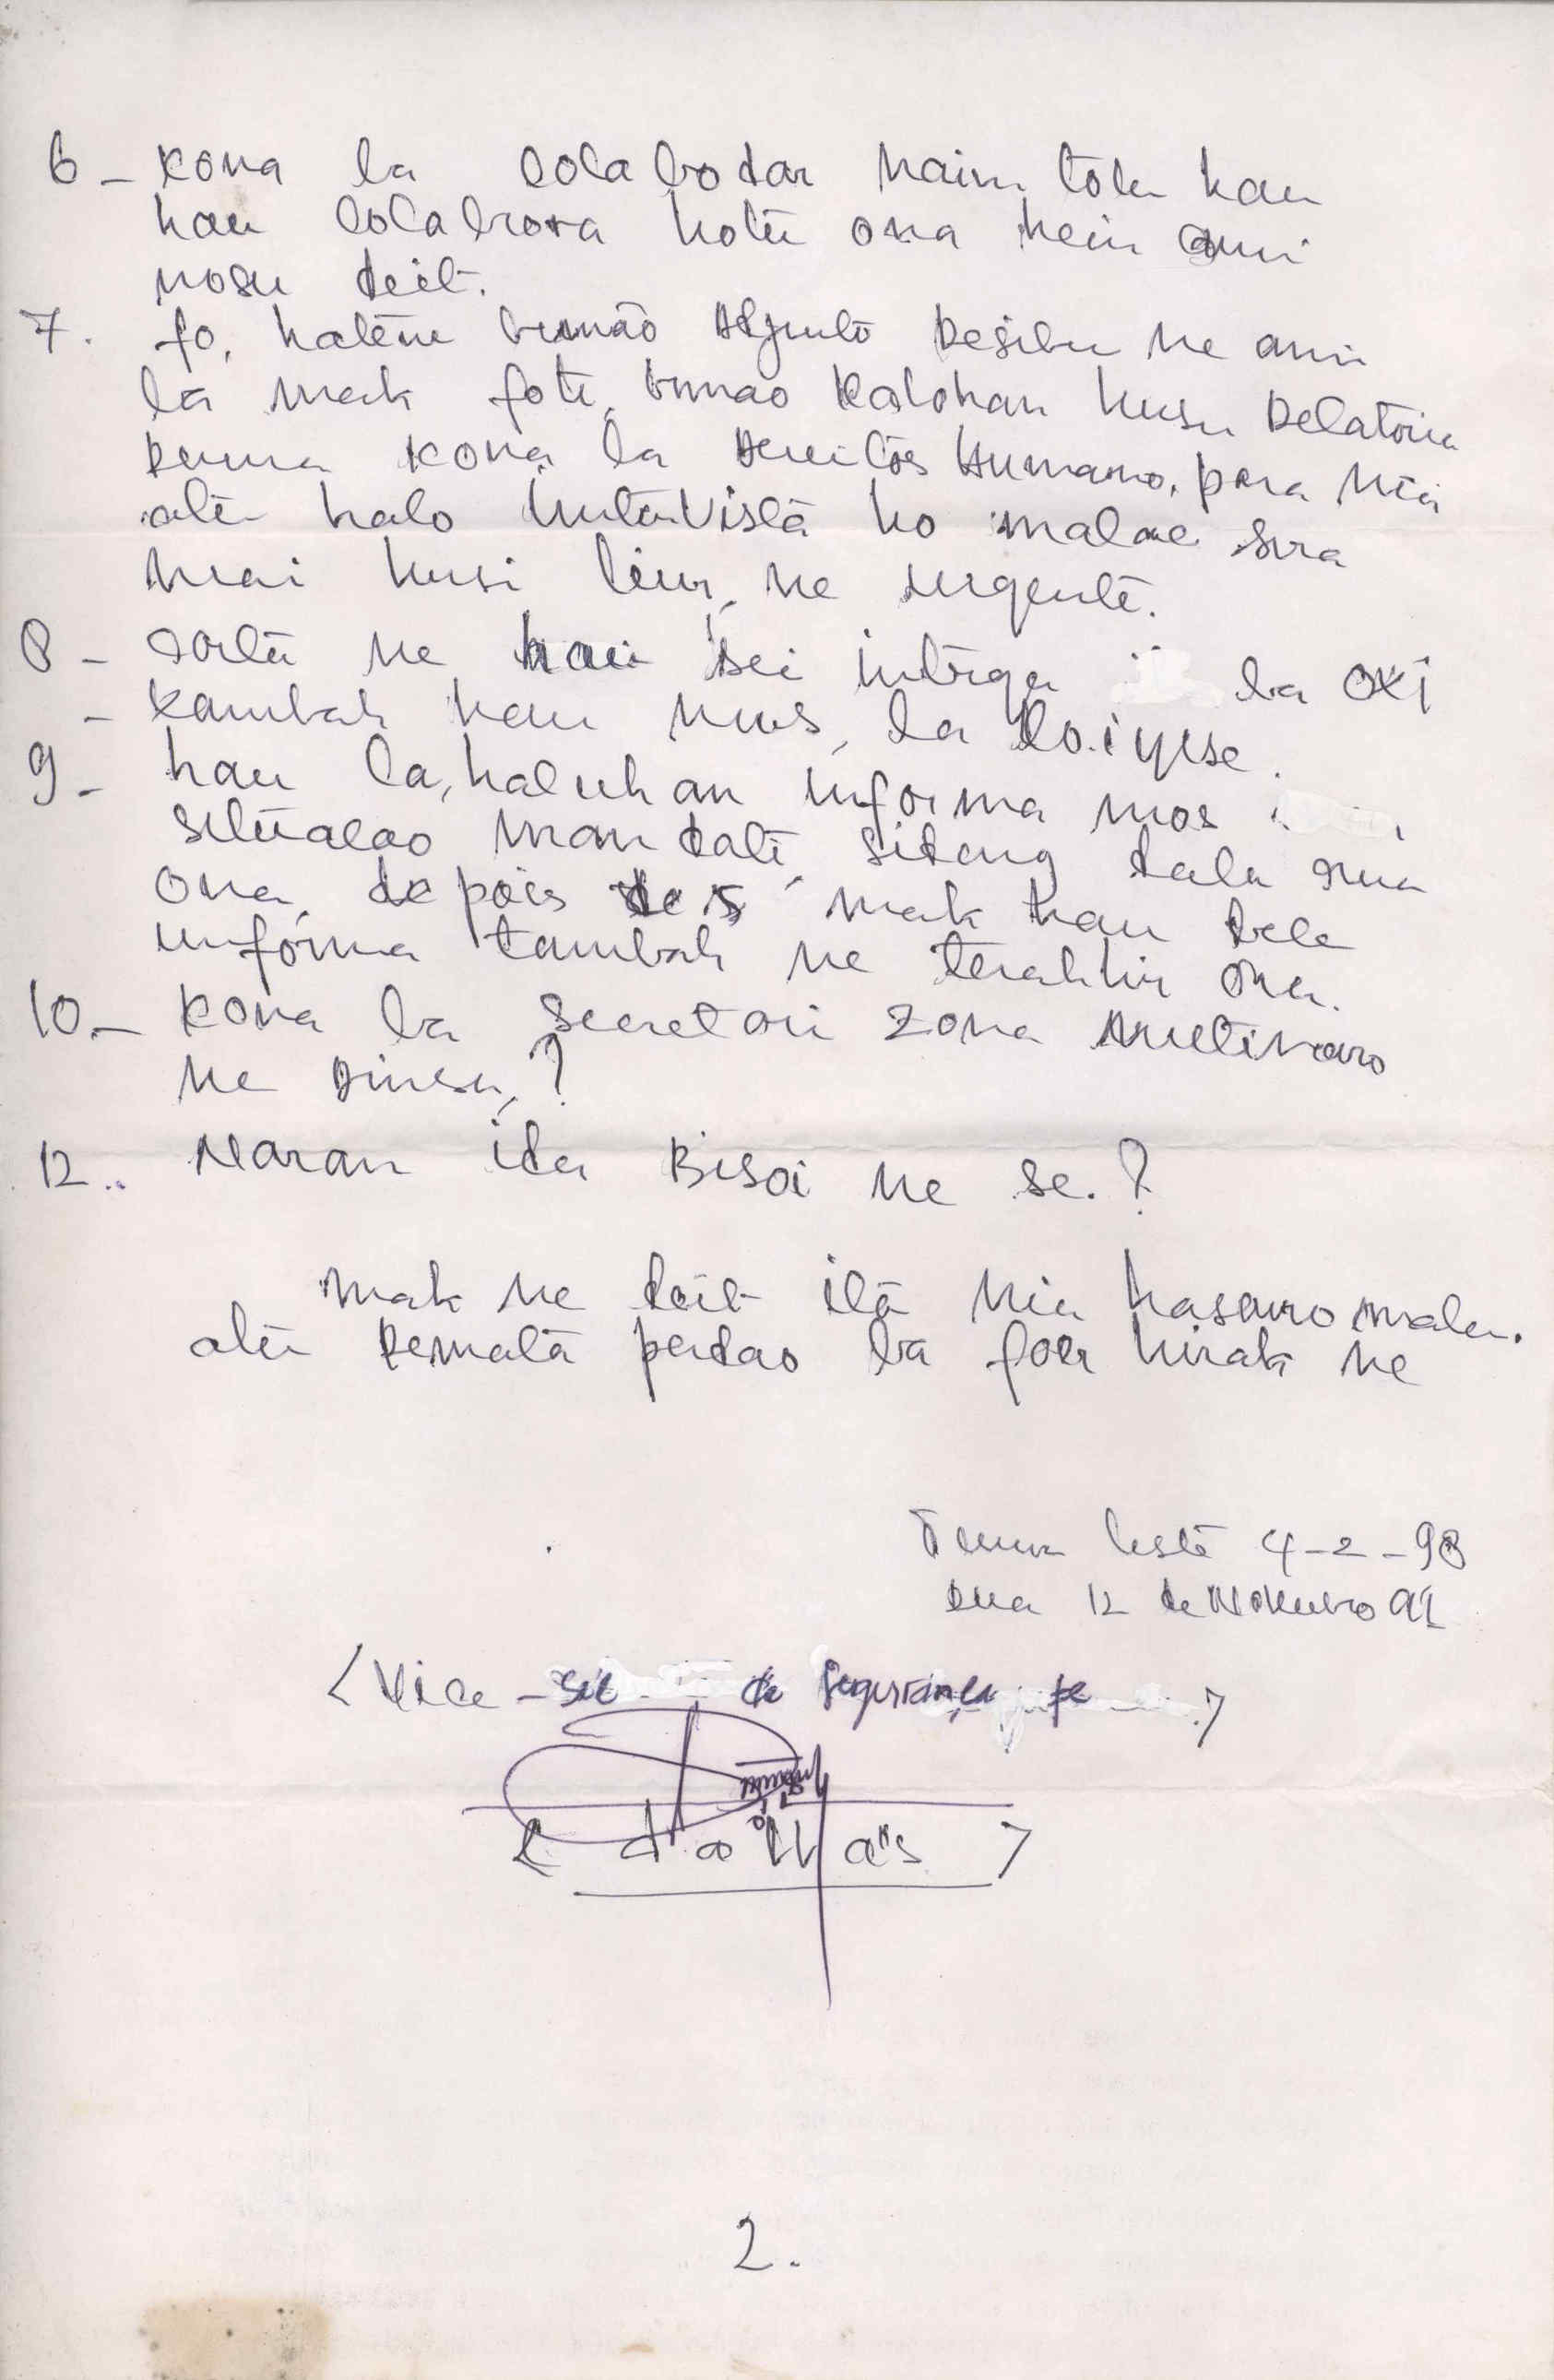 6 - kona ba colabodor nain tolu hau
hau colabora hotu ona hein ami
nosu deit.
7. fo, hatene irmão Adjunto Resibu ne ami
la mak foti, irmao Kalohan husu Relatoriu
ruma kona ba Dereitos Humano, para nia
atu halo intervista ho malae sira
mai husi liur, ne urgente.
8 - carta ne hau sei intrega ba OXI
- kambah hau mos, la
9 - hau la, haluhan informa mos
situacao mandati, sidang dala rua
ona, depois de 5 mak hau bele
informa tambah ne terakhir ona.
10. - kona ba secretari zona Metinaro
ne Dinesu, ?
12.. Naran ida Bisoi ne se. ?
mak ne deit ita nia hasouro malu.
atu Remata perdao ba foer hirak ne
Timur leste 4-2-98
Rua 12 de Novembro 91
< Vice - sec de Segurança >
< dallya's >
2.